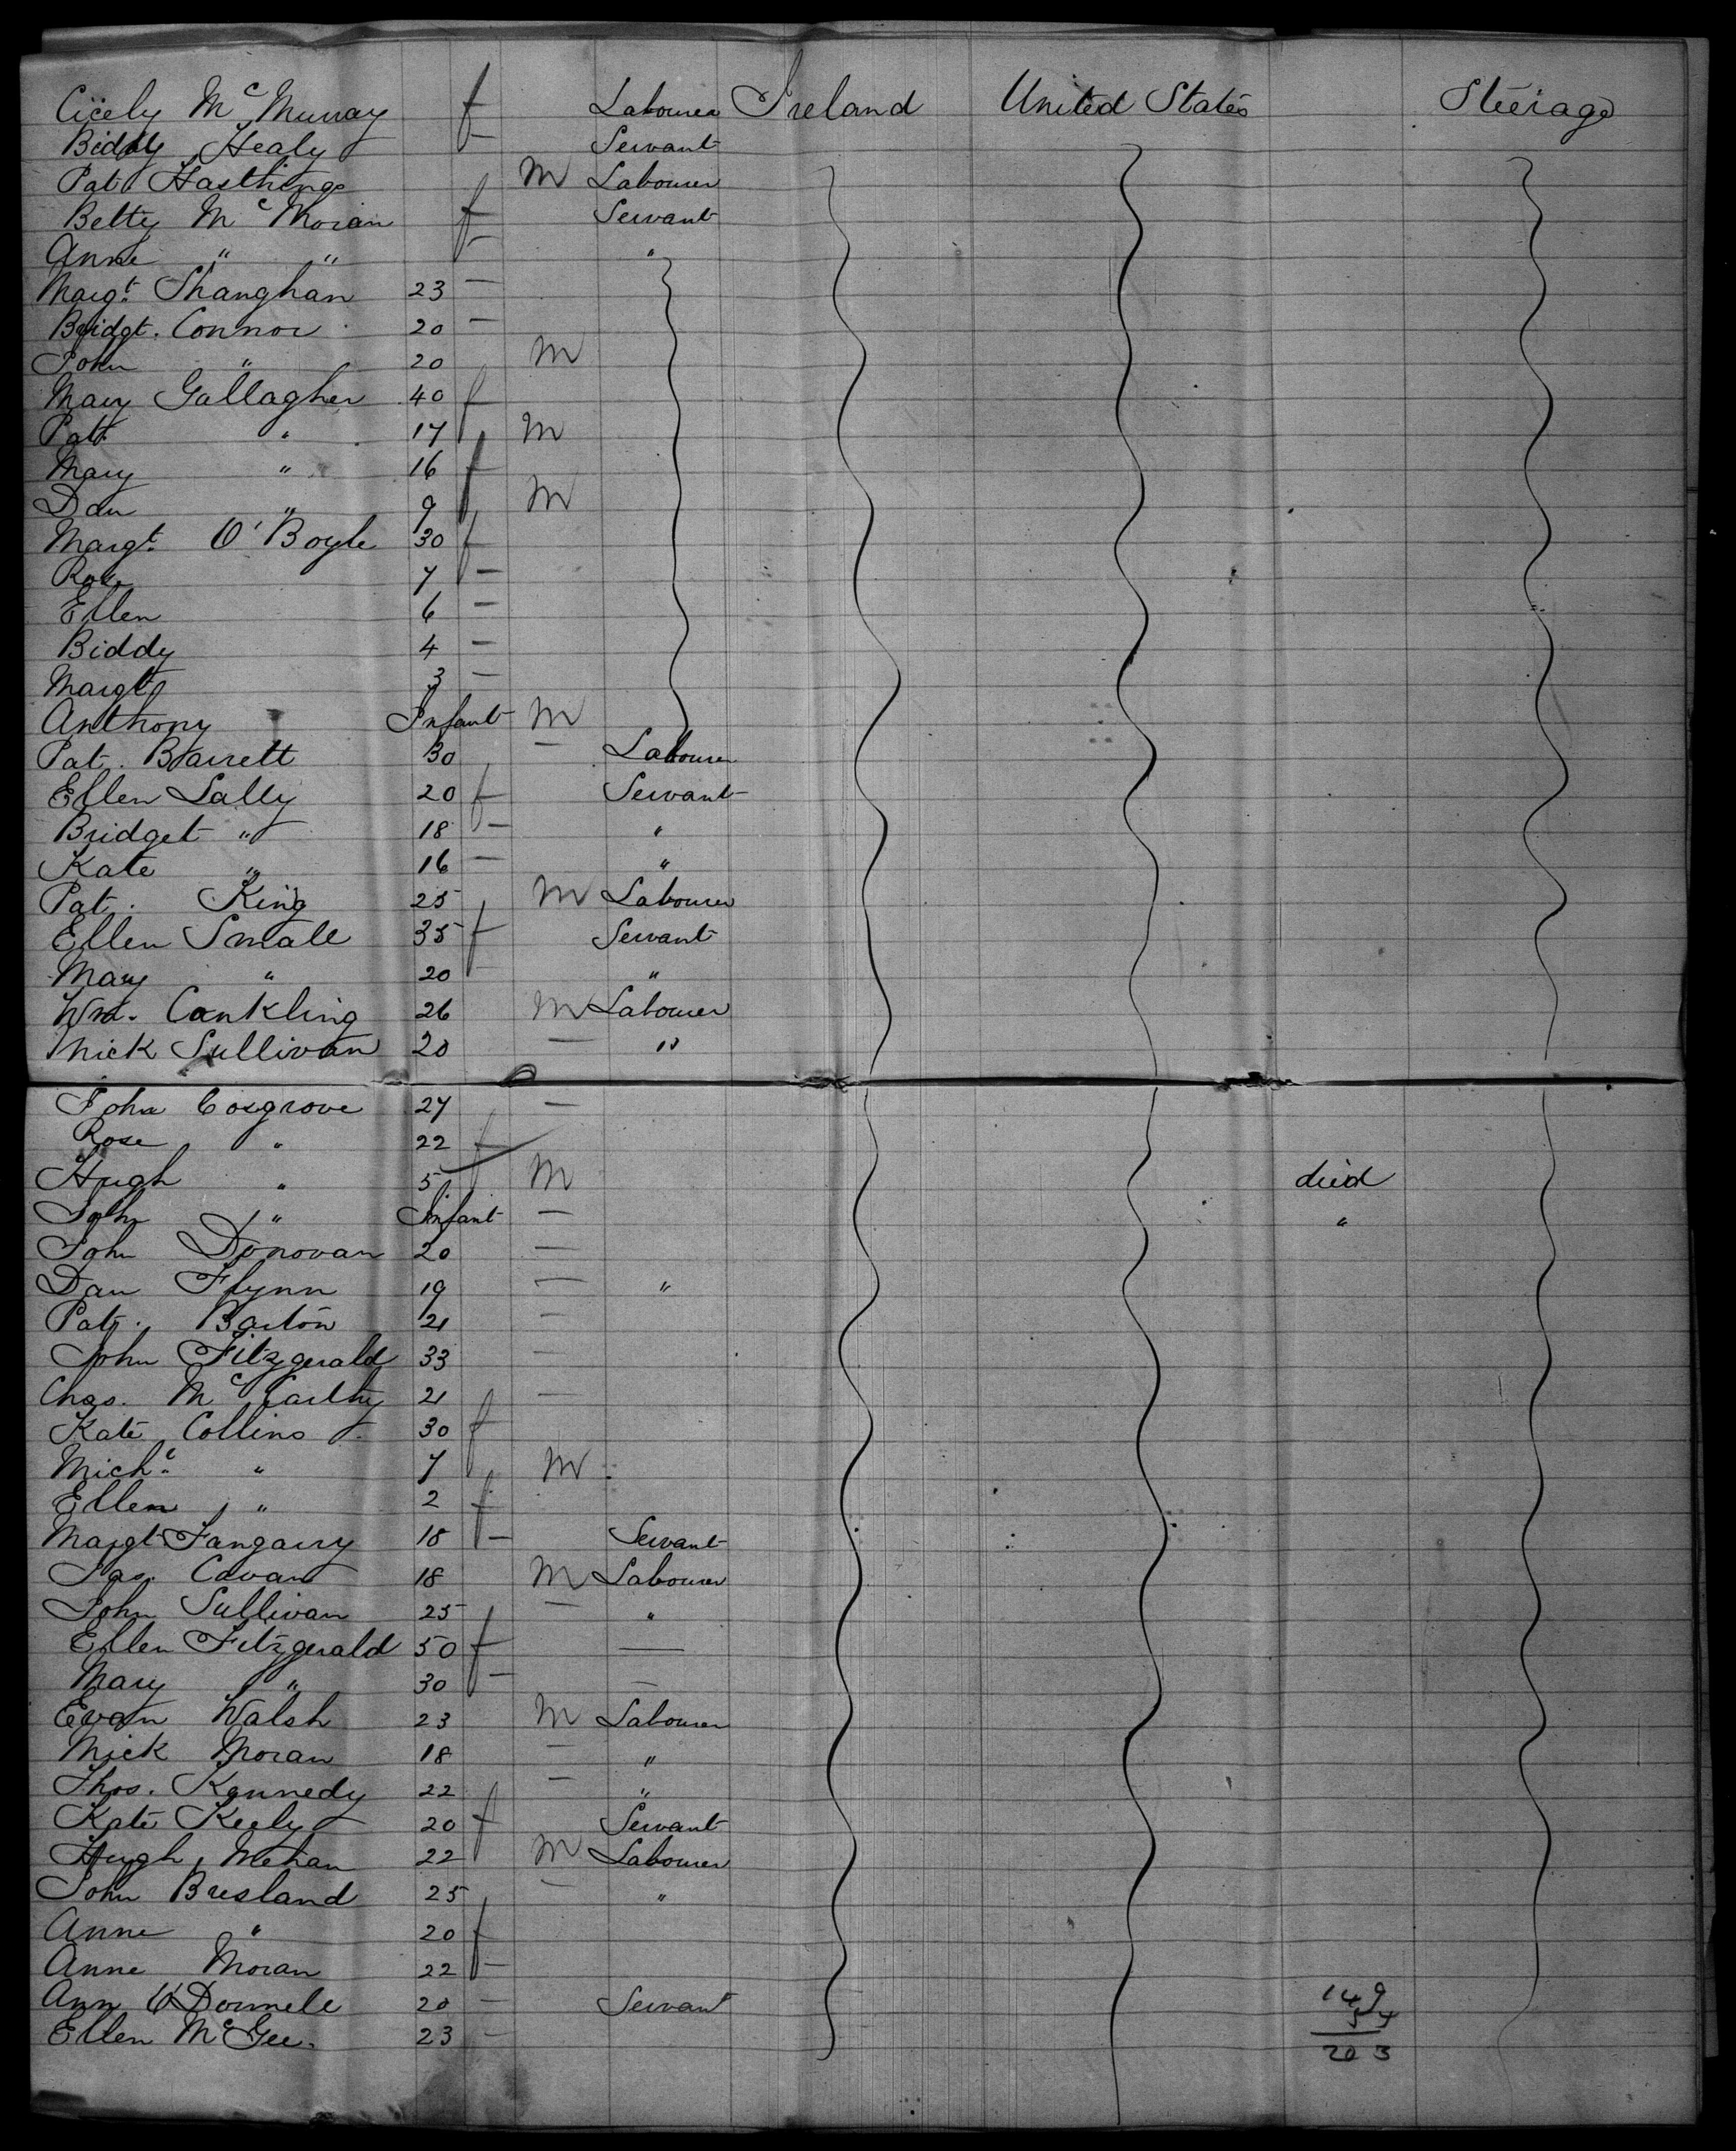 Cicely Mc Murray f Labourer Ireland United States Steerage
Biddy Healy — Servant
Pat Hasthings M Labourer
Betty Mc Moran f Servant
Anne " " — "
Margt. Shanghan 23 —
Bridgt. Connor 20 —
John " 20 M
Mary Gallagher 40 f
Patt " 17 M
Mary " 16 f
Dan " 9 M
Margt. O'Boyle 30 f
Rose 7 —
Ellen 6 —
Biddy 4 —
Margt 3 —
Anthony Infant M
Pat. Barrett 30 — Labourer
Ellen Lally 20 f Servant
Bridget " 18 — "
Kate " 16 — "
Pat. King 25 M Labourer
Ellen Small 35 f Servant
Mary " 20 — "
Wm. Conkling 26 M Labourer
Mick Sullivan 20 — "
John Cosgrove 27 —
Rose " 22 f
Hugh " 5 M died
John " Infant — "
John Donovan 20 —
Dan Flynn 19 — "
Pat. Barton 21 —
John Fitzgerald 33 —
Chas. McCarthy 21 —
Kate Collins 30 f
Michl. " 7 M
Ellen " 2 f
Margt 18 — Servant
Jas. Cavan 18 M Labourer
John Sullivan 25 — "
Ellen Fitzgerald 50 f —
Mary " 30 — —
Evan Walsh 23 M Labourer
Mick Moran 18 — "
Thos. Kennedy 22 — "
Kate Keely 20 f Servant
Hugh Mehan 22 M Labourer
John Bresland 25 — "
Anne " 20 f
Anne Moran 22 —
Ann O'Donnell 20 — Servant 149
54
Ellen McGee. 23 — 203